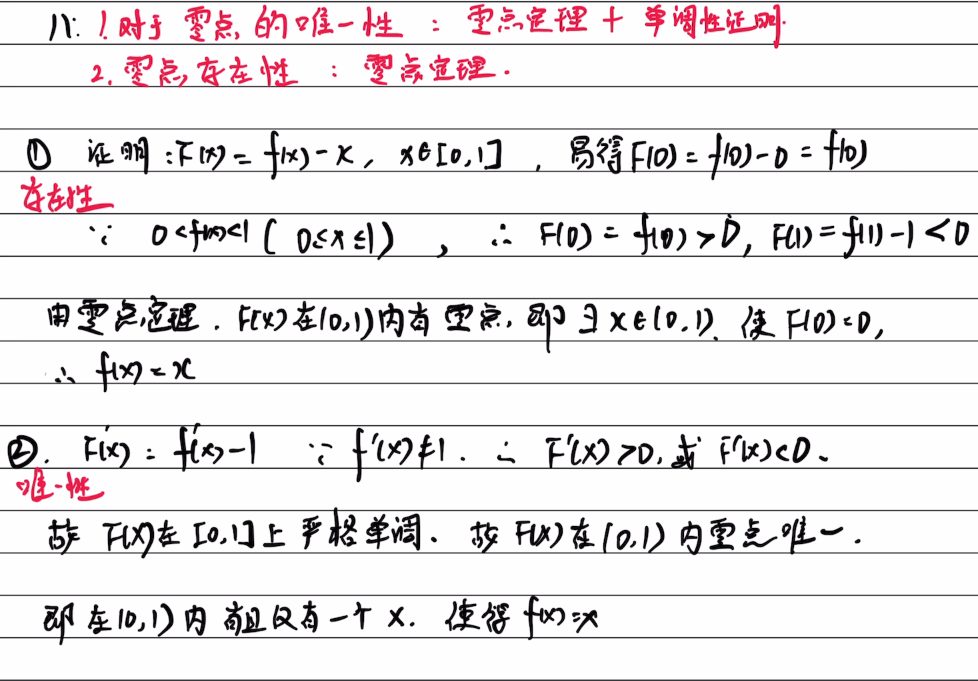 八: 1.对于零点的唯一性 : 零点定理 + 单调性证明.
2.零点存在性 : 零点定理.
① 证明:F(x)=f(x)-x, x∈[0,1], 易得F(0)=f(0)-0=f(0)
存在性
∵ 0<f(x)<1 ( 0≤x≤1 ) , ∴ F(0)=f(0)>0, F(1)=f(1)-1<0
由零点定理. F(x)在(0,1)内有零点, 即∃x∈(0,1). 使F(0)=0,
∴ f(x)=x
②. F'(x)=f'(x)-1 ∵ f'(x)≠1. ∴ F'(x)>0,或 F'(x)<0.
唯一性
故 F(x)在[0,1]上严格单调. 故 F(x)在(0,1)内零点唯一.
即在(0,1)内有且仅有一个x. 使得f(x)=x